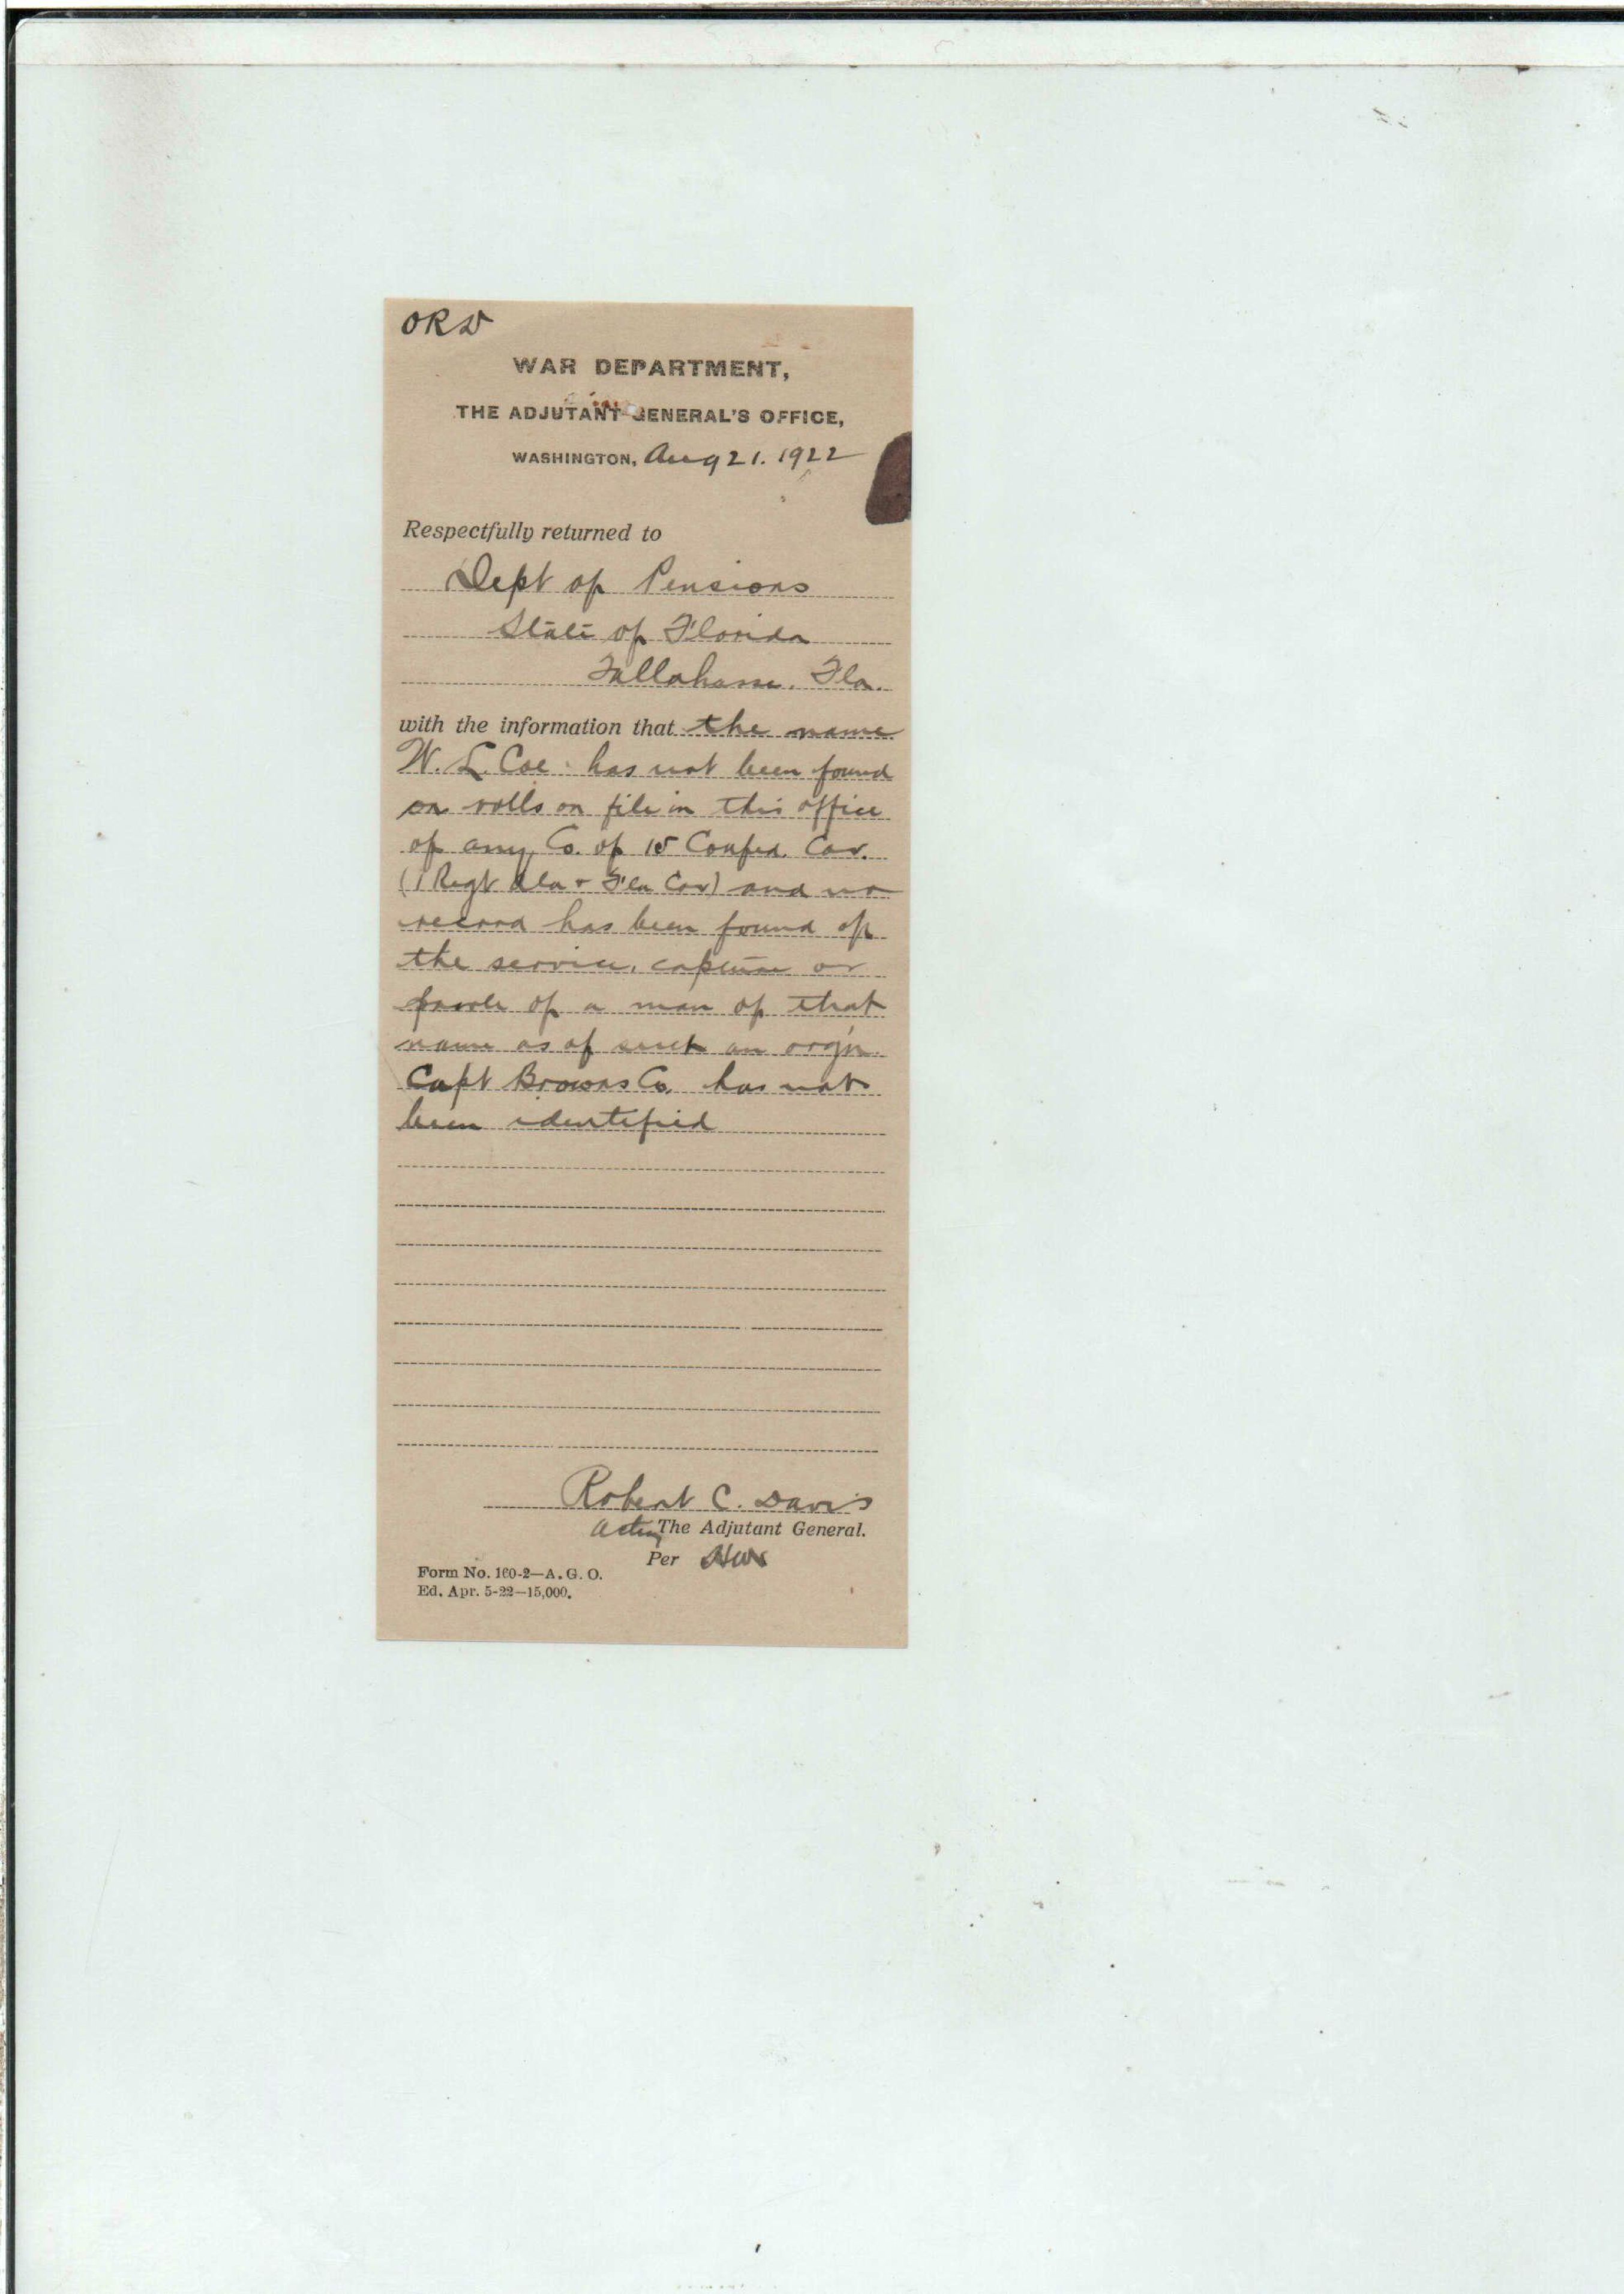 ORD
WAR DEPARTMENT,
THE ADJUTANT GENERAL'S OFFICE,
WASHINGTON, Aug 21. 1922
Respectfully returned to
Dept of Pensions
State of Florida
Tallahassee. Fla.
with the information that the name
W. L. Coe has not been found
on rolls on file in this office
of any Co. of 15 Confed. Cav.
(1 Regt Ala & Fla Cav) and no
record has been found of
the service, capture or
parole of a man of that
name as of such an orgn.
Capt Browns Co. has not
been identified
Robert C. Davis
Acting The Adjutant General.
Per
Form No. 160-2—A. G. O.
Ed. Apr. 5-22—15,000.